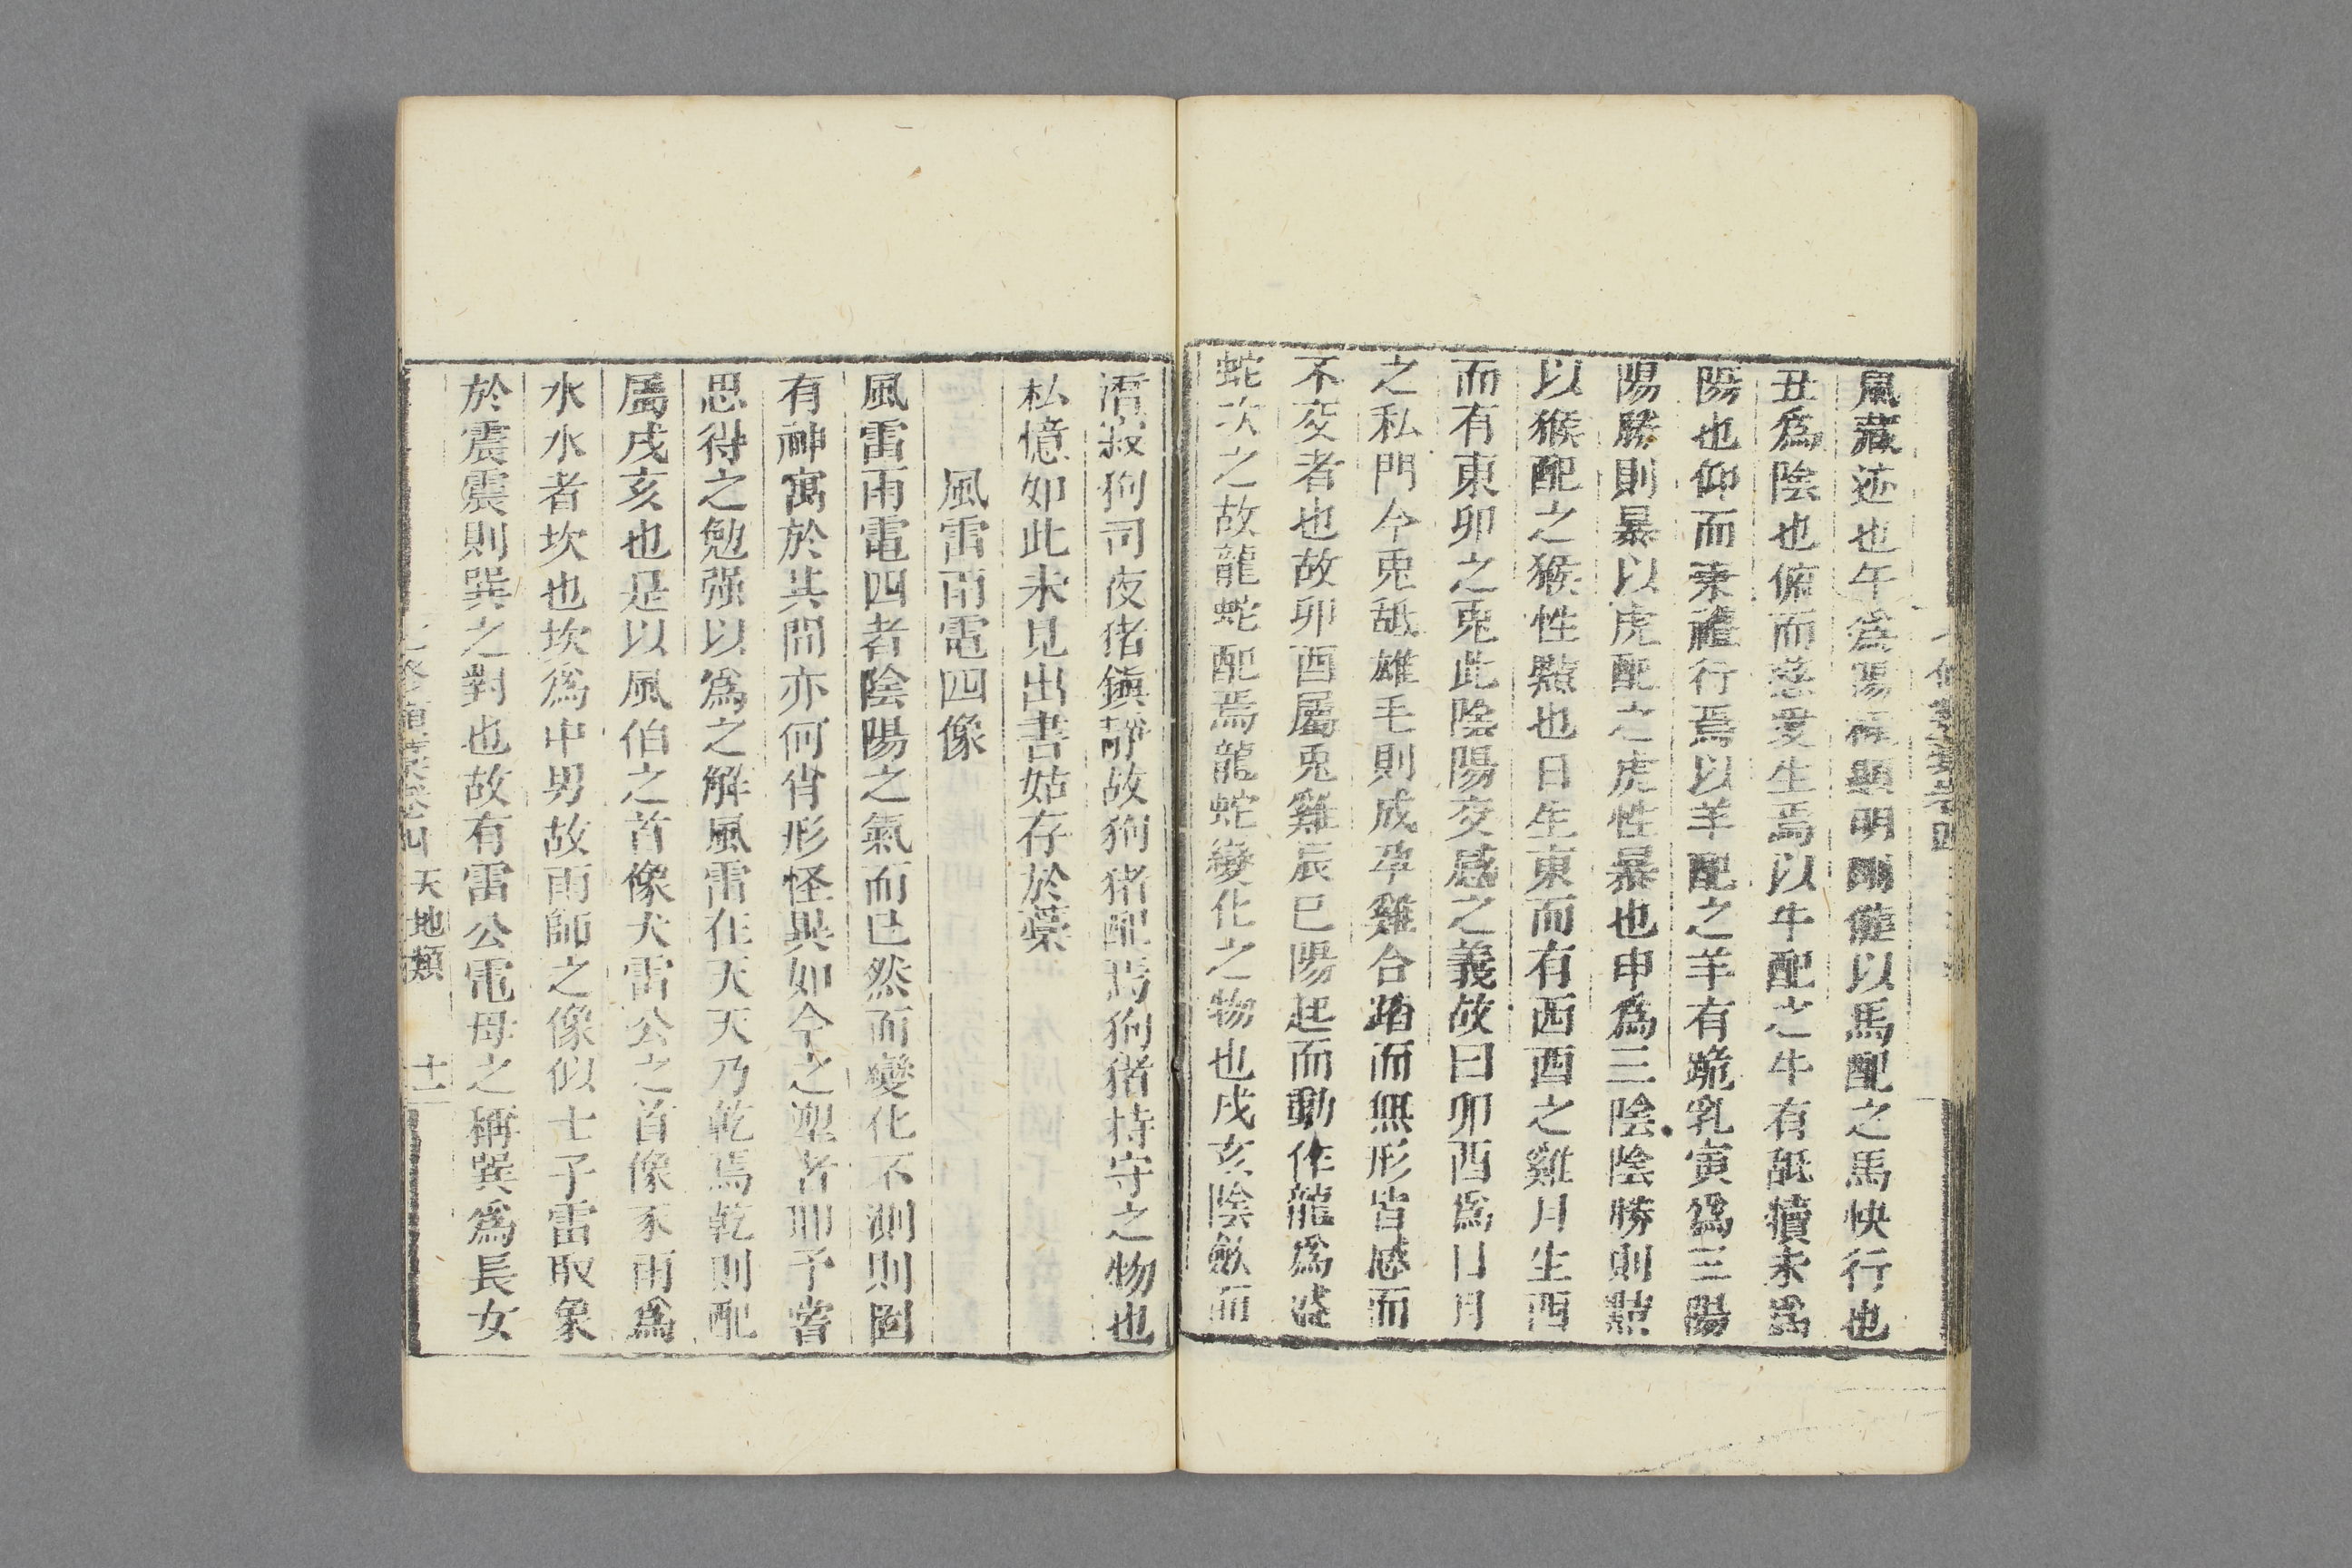 鼠藏迹也午爲陽極顯明剛健以馬配之馬快行也
丑爲陰也俯而慈愛生焉以牛配之牛有舐犢未爲
陽也仰而秉禮行焉以羊配之羊有跪乳寅爲三陽
陽勝則暴以虎配之虎性暴也申爲三陰陰勝則黠
以猴配之猴性黠也日生東而有西酉之雞月生西
而有東卯之兎此陰陽交感之義故曰卯酉爲日月
之私門今兎舐雄毛則成孕雞合踏而無形皆感而
不交者也故卯酉屬兎雞辰巳陽起而動作龍爲盛
蛇次之故龍蛇配焉龍蛇變化之物也戌亥陰斂而
潛寂狗司夜猪鎮靜故狗猪配焉狗猪持守之物也
私憶如此未見出書姑存於藁
風雷雨電四像
風雷雨電四者陰陽之氣而已然而變化不測則固
有神寓於其間亦何肖形怪異如今之塑者耶予嘗
思得之勉强以爲之解風雷在天天乃乾焉乾則配
屬戌亥也是以風伯之首像犬雷公之首像豕雨爲
水水者坎也坎爲中男故雨師之像似士子雷取象
於震震則巽之對也故有雷公電母之稱巽爲長女
七修類藁卷四 天地類 十一